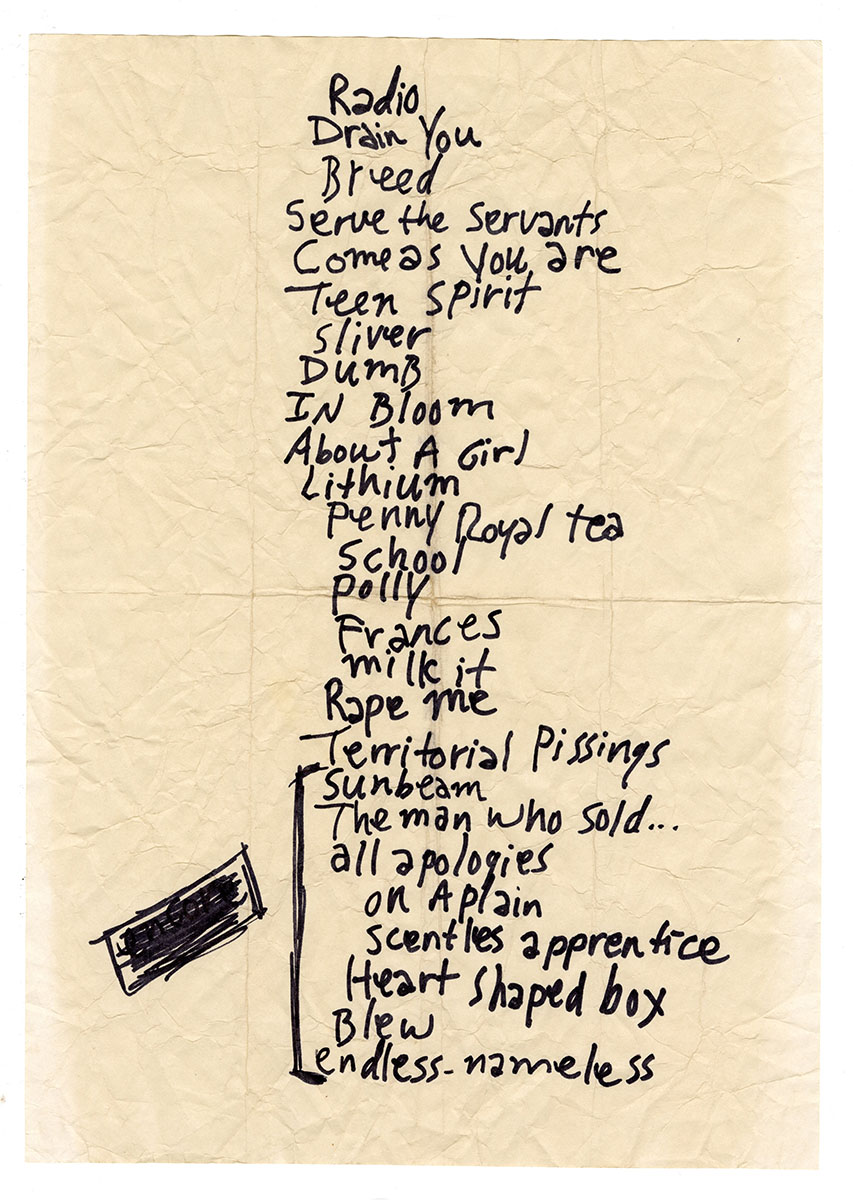 Radio
Drain You
Breed
Serve the Servants
Come as you are
Teen Spirit
Sliver
DumB
IN Bloom
About A Girl
Lithium
Penny Royal tea
School
Polly
Frances
milk it
Rape me
Territorial Pissings
Sunbeam
The man who sold...
all apologies
on A plain
scentles apprentice
Heart shaped box
Blew
endless-nameless
encore